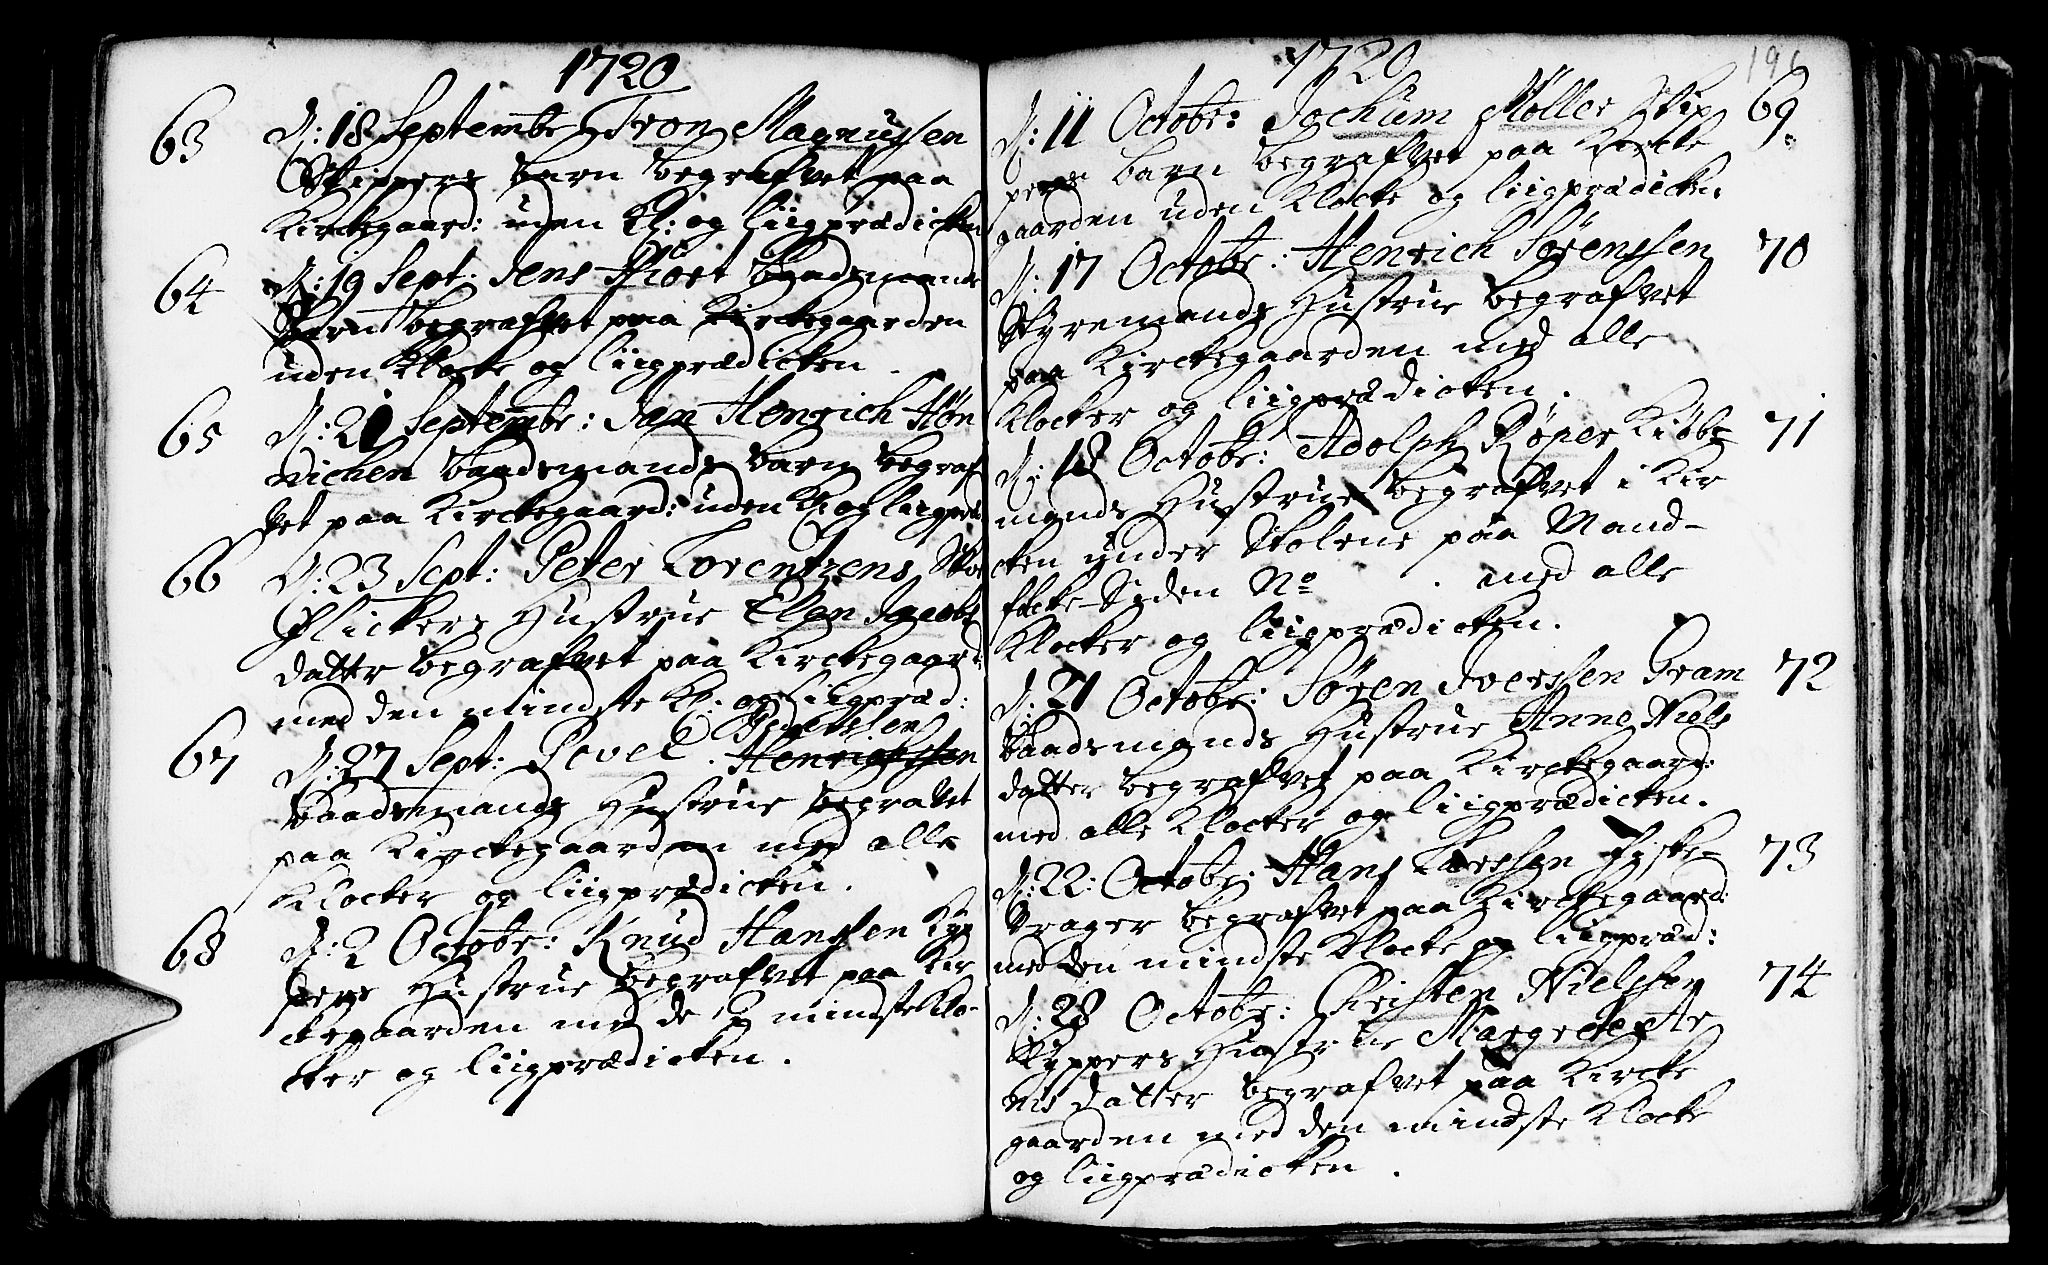 1720
63 D: 18 Septembr Tron Magnussen
Skippers barn begrafvet paa
Kirckegaard: uden Kl: og liigprædicken
64 D: 19 Sept: Jens Hiort baadsmands
barn begrafvet paa Kirckegaarden
uden Klocke og liigprædicken.
65 D: 21 Septembr: Jan Henrich Hön
nichen baadsmands barn begraf
vet paa Kirckegaard: uden Kl: og liigpræd
66 D: 23 Sept: Peter Lorentzens Skoe
flickers Hustrue Elen Jacobs
datter begrafvet paa Kirckegaard:
med den mindste Kl: og liigpræd:
67 D: 27 Sept: Povel Henrichssen
baadsmands Hustrue begravet
paa Kirckegaarden med alle
Klocker og liigprædicken.
68 D: 2 Octobr: Knud Hanssen Kip
pers Hustrue begrafvet paa Kir
ckegaarden med de 2 mindste Klo-
cker og liigprædicken.
1720
196
D: 11 Octobr: Jochum Møller Skip 69
pers barn begrafvet paa Kircke
gaarden uden Klocke og liigprædicken.
D: 17 Octobr: Henrich Sörenssen 70
Styremands Hustrue begrafvet
paa Kirckegaarden med alle
Klocker og liigprædicken.
D: 18 Octobr: Adolph Røper Kiøb= 71
mands Hustrue begrafvet i Kir
cken under Stolene paa Mand-
folcke-Siden No . med alle
Klocker og liigprædicken.
D: 21 Octobr: Sören Iverssen Gram 72
baadsmands Hustrue Anne Niels
datter begrafvet paa Kirckegaard:
med alle Klocker og liigprædicken.
D: 22: Octobr: Hans Larssen fiske- 73
drager begrafvet paa Kirckegaard:
med den mindste Klocke og liigpræd:
D: 28 Octobr: Christen Nielssen 74
Skippers Hustrue Margrete
datter begrafvet paa Kircke
gaarden med den mindste Klocke
og liigprædicken.